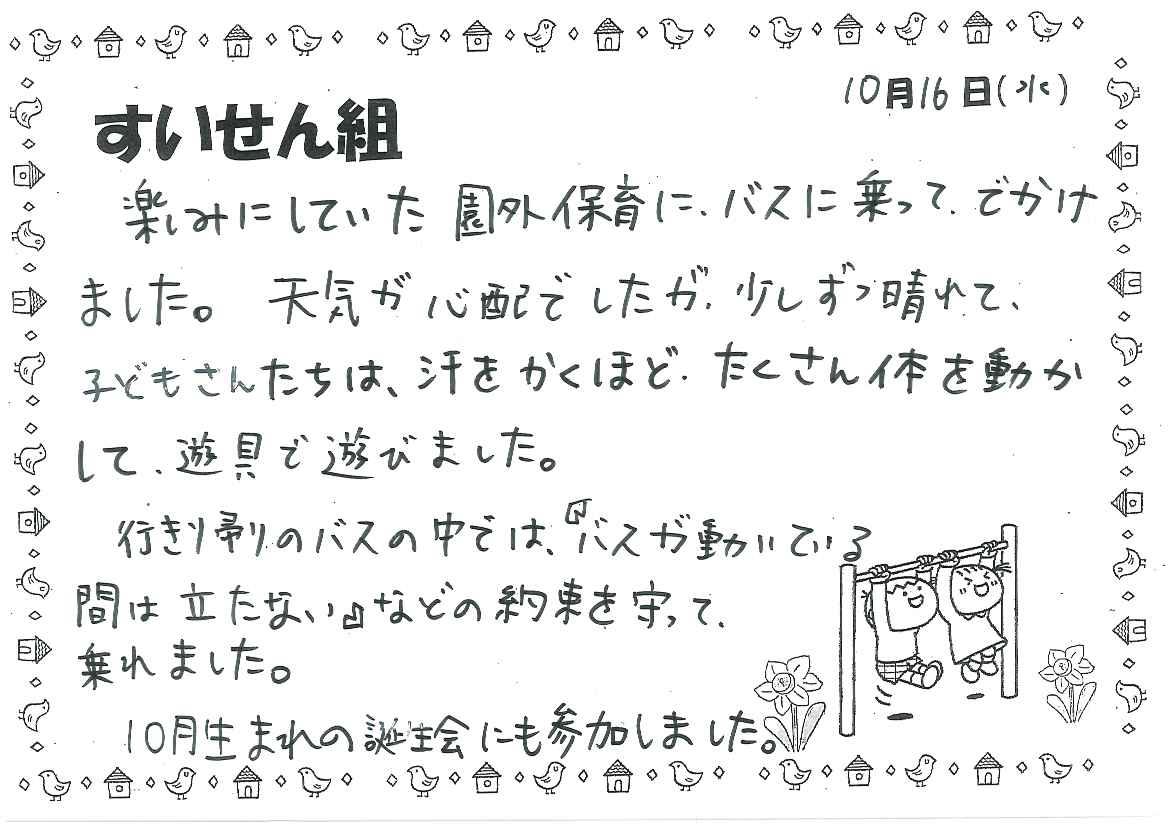 10月16日(水)
すいせん組
楽しみにしていた園外保育に、バスに乗って、でかけ
ました。天気が心配でしたが、少しずつ晴れて、
子どもさんたちは、汗をかくほど、たくさん体を動か
して、遊具で遊びました。
行き帰りのバスの中では、『バスが動いている
間は立たない』などの約束を守って、
乗れました。
10月生まれの誕生会にも参加しました。